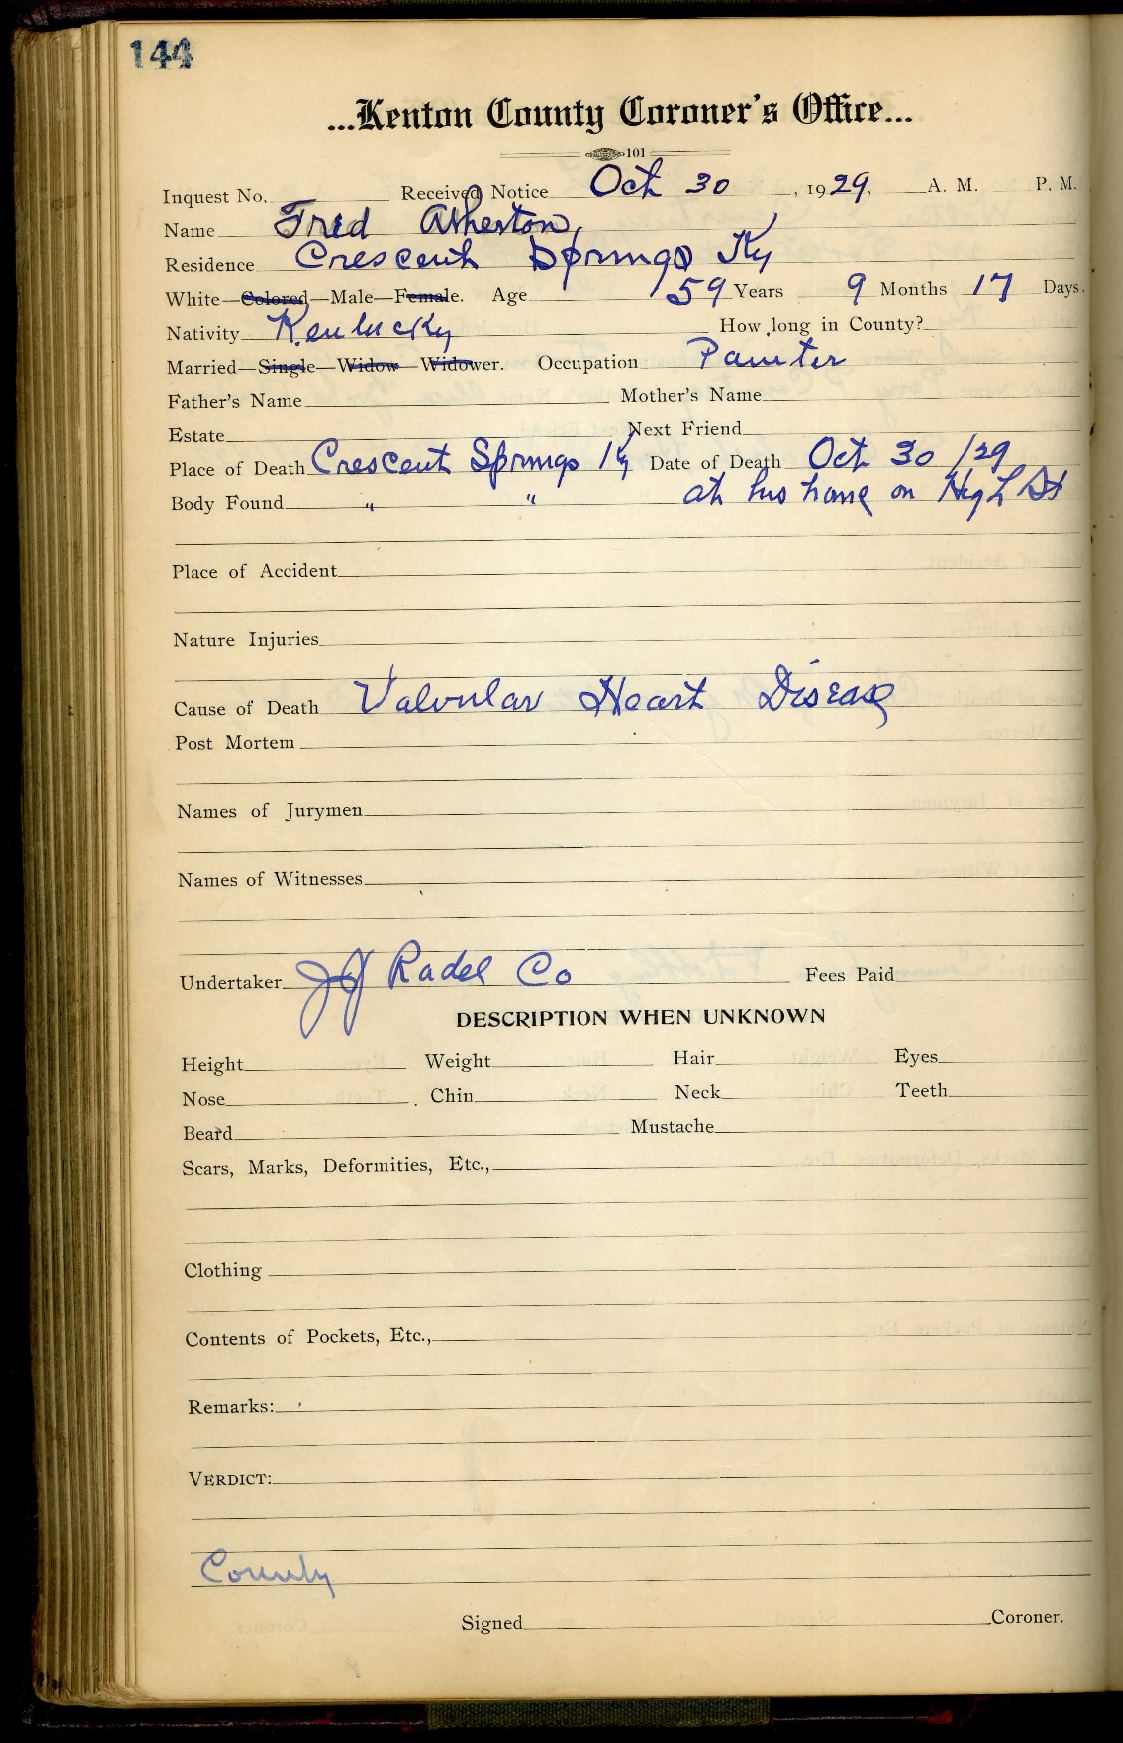 144
...Kenton County Coroner's Office...
101
Inquest No. Received Notice Oct 30, 1929. A. M. P. M.
Name Fred Atherton,
Residence Crescent Springs Ky
White—Colored—Male—Female. Age 59 Years 9 Months 17 Days.
Nativity Kentucky How long in County?
Married—Single—Widow—Widower. Occupation Painter
Father's Name Mother's Name
Estate Next Friend
Place of Death Crescent Springs Ky Date of Death Oct 30 /29
Body Found " " at his home on High St
Place of Accident
Nature Injuries
Cause of Death Valvular Heart Disease
Post Mortem
Names of Jurymen
Names of Witnesses
Undertaker JJ Radel Co Fees Paid
DESCRIPTION WHEN UNKNOWN
Height Weight Hair Eyes
Nose Chin Neck Teeth
Beard Mustache
Scars, Marks, Deformities, Etc.,
Clothing
Contents of Pockets, Etc.,
Remarks:
VERDICT:
County
Signed Coroner.